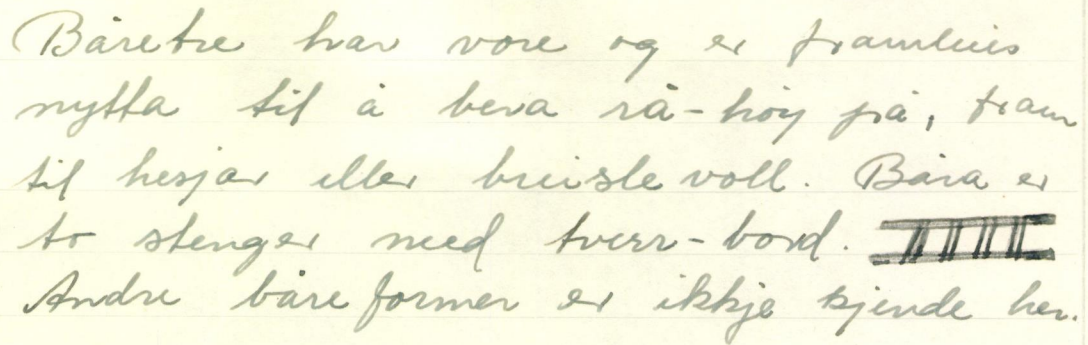 Båretre har vore og er framleis
nytta til å bera rå-höy på, fram
til hesjar eller breislevoll. Båra er
to stenger med tverr-bord.
Andre båreformer er ikkje kjende her.